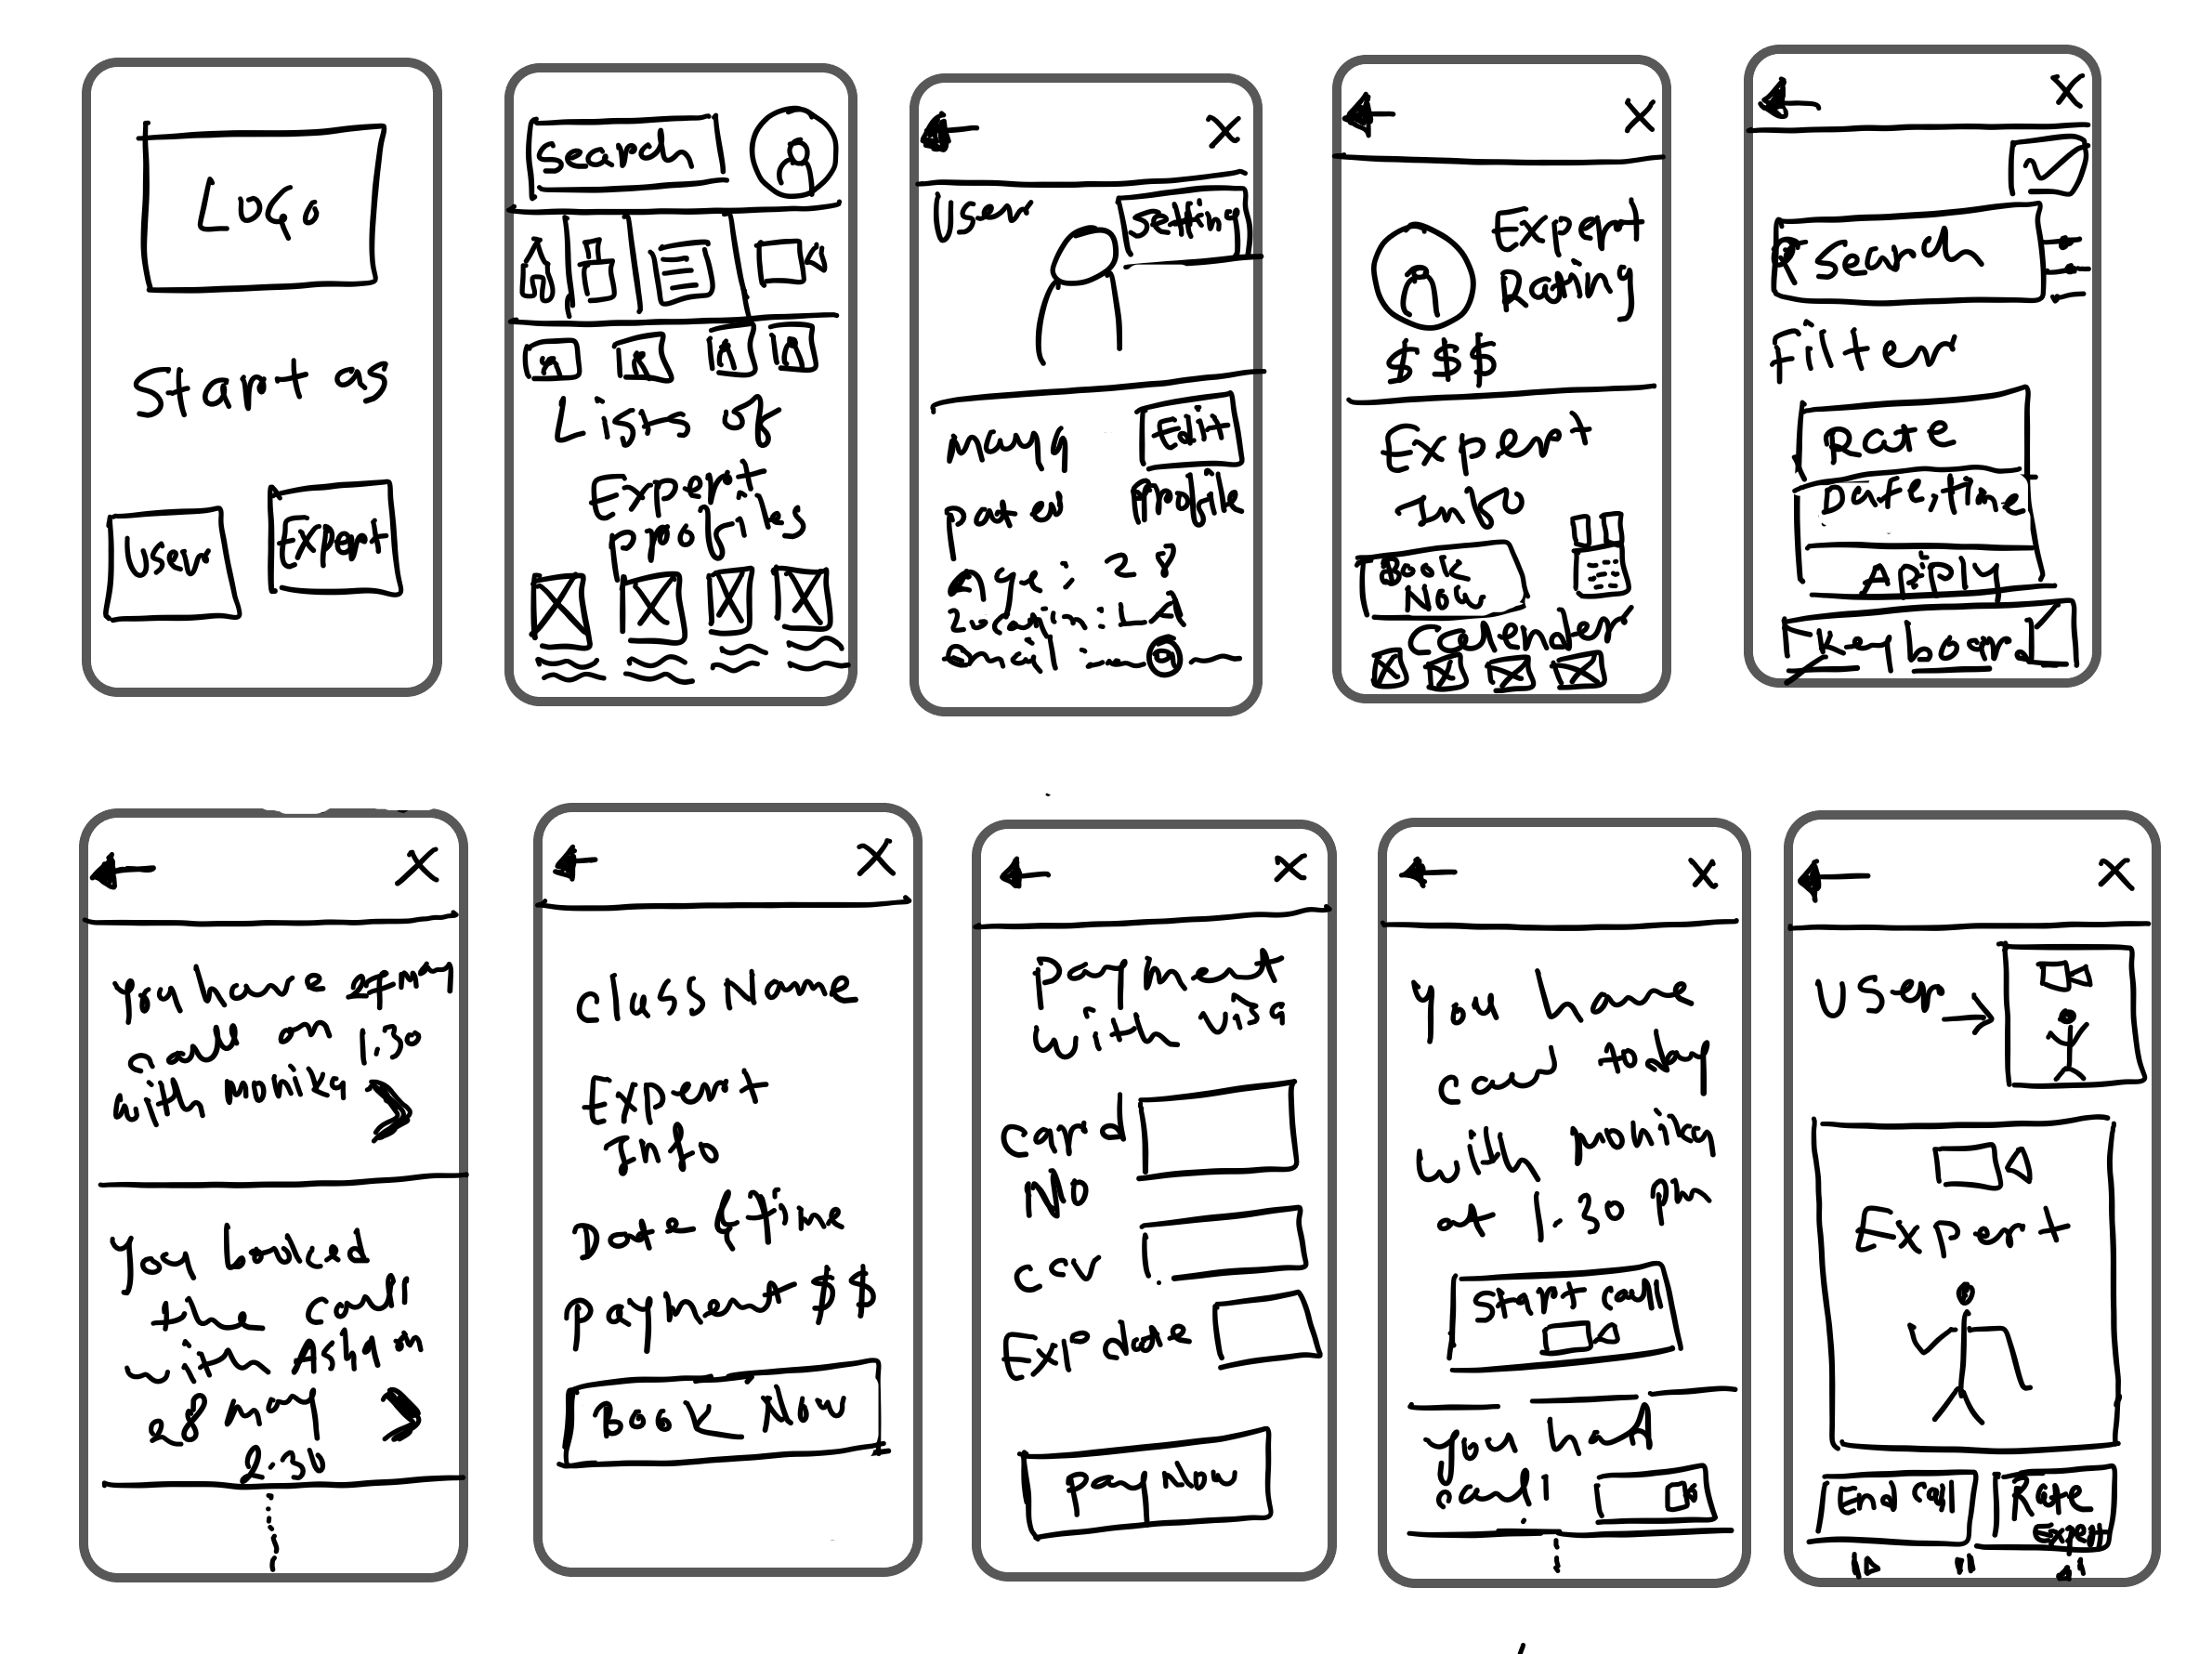 LOGO
Start as
User
Expert
Search
Lists of
Expert
profiles
User
Setting
Maya
Edit
Patel
Profile
Age: 28
Email:
Expert
Rating
$$$
Expert
Info
Book
Now
Calender
Search
Filter
Rate
Date, time
Apply
Keyboard
You have
call on 1.30
with monika
You booked
the call
with Ashân
28 may
2.30
Class Name
Expert
Info
Date & time
payment $$
Book Now
Payment
with visa
Card
No
Exp date
Pay Now
You have
call today
with monika
at 1.30 pm
Start call
you had
call
User
Expert
End call
Rate
Expert